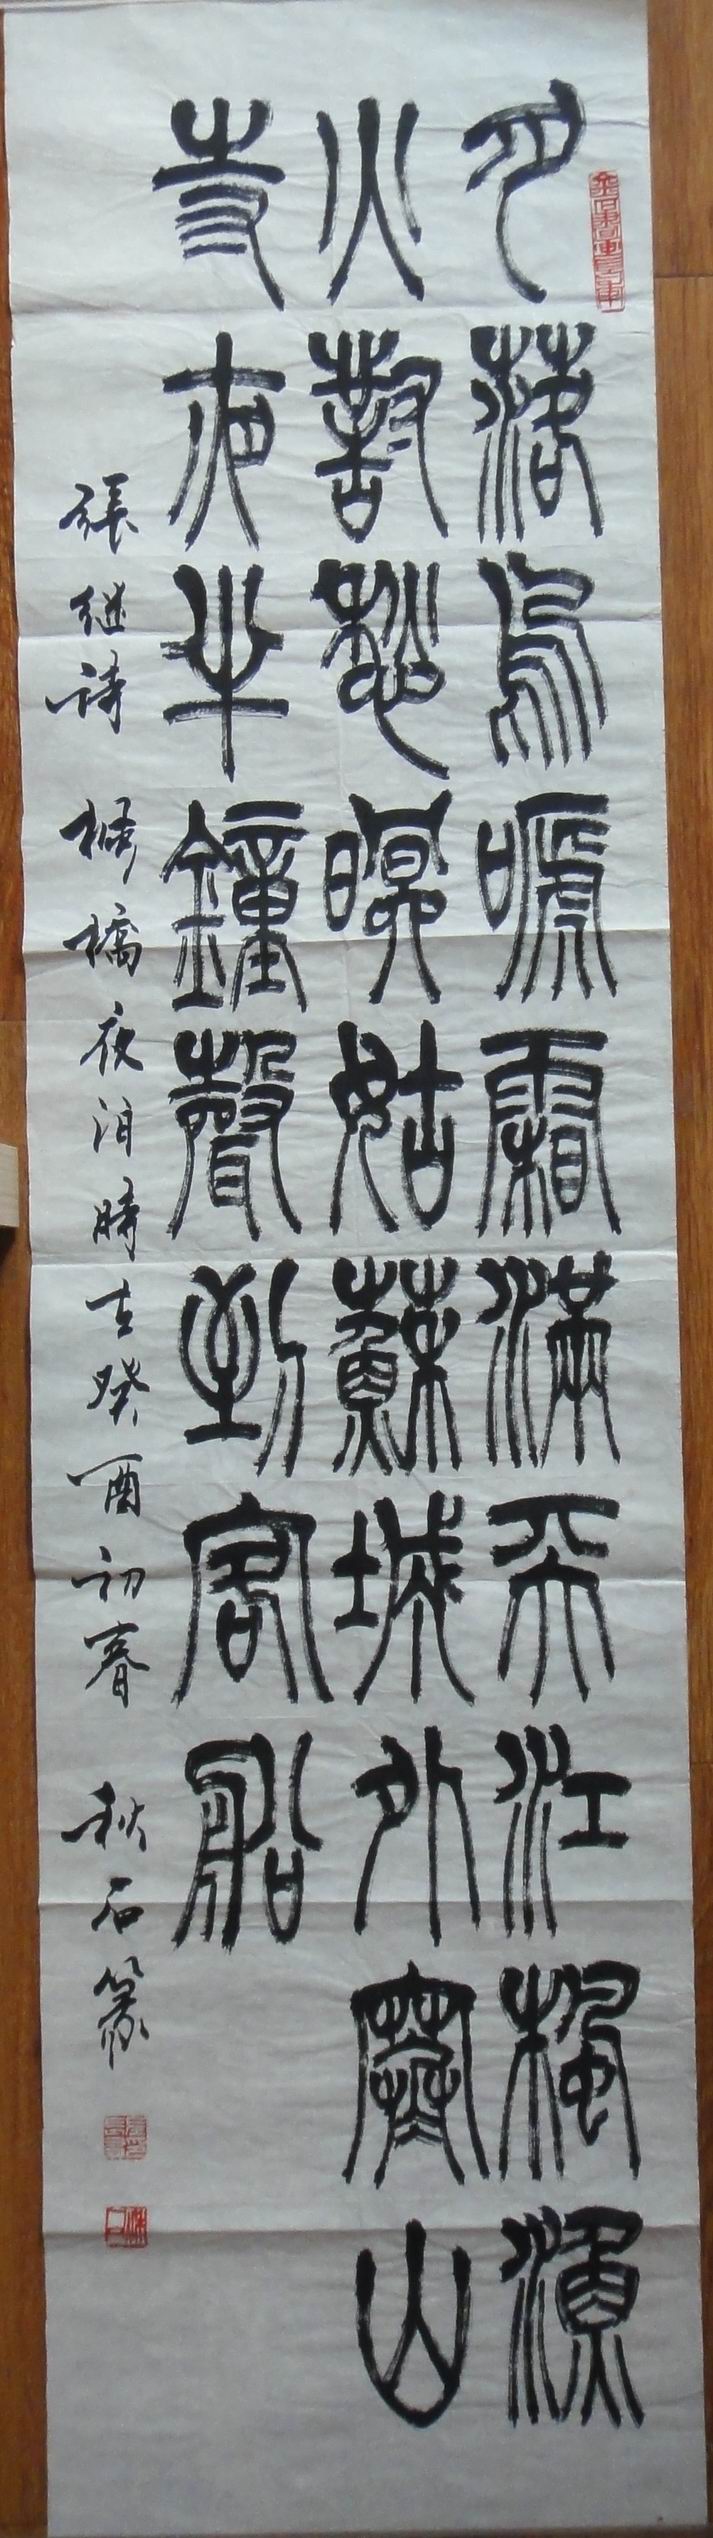 月落烏嗁霜滿天江楓漁
火對愁瞑姑蘇城外寒山
寺夜半鐘聲到客船
張继詩 楓橋夜泊時在癸酉初春 秋石篆